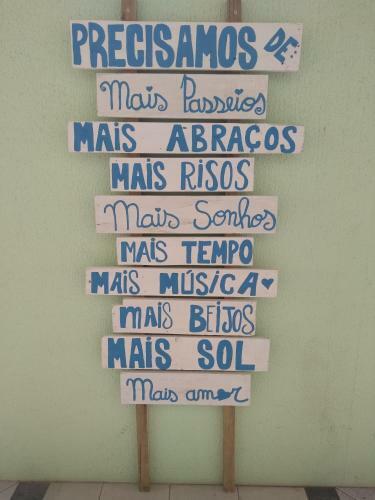 PRECISAMOS DE:
Mais Passeios
MAIS ABRAÇOS
MAIS RISOS
Mais Sonhos
MAIS TEMPO
MAIS MÚSICA
MAIS BEIJOS
MAIS SOL
Mais amor